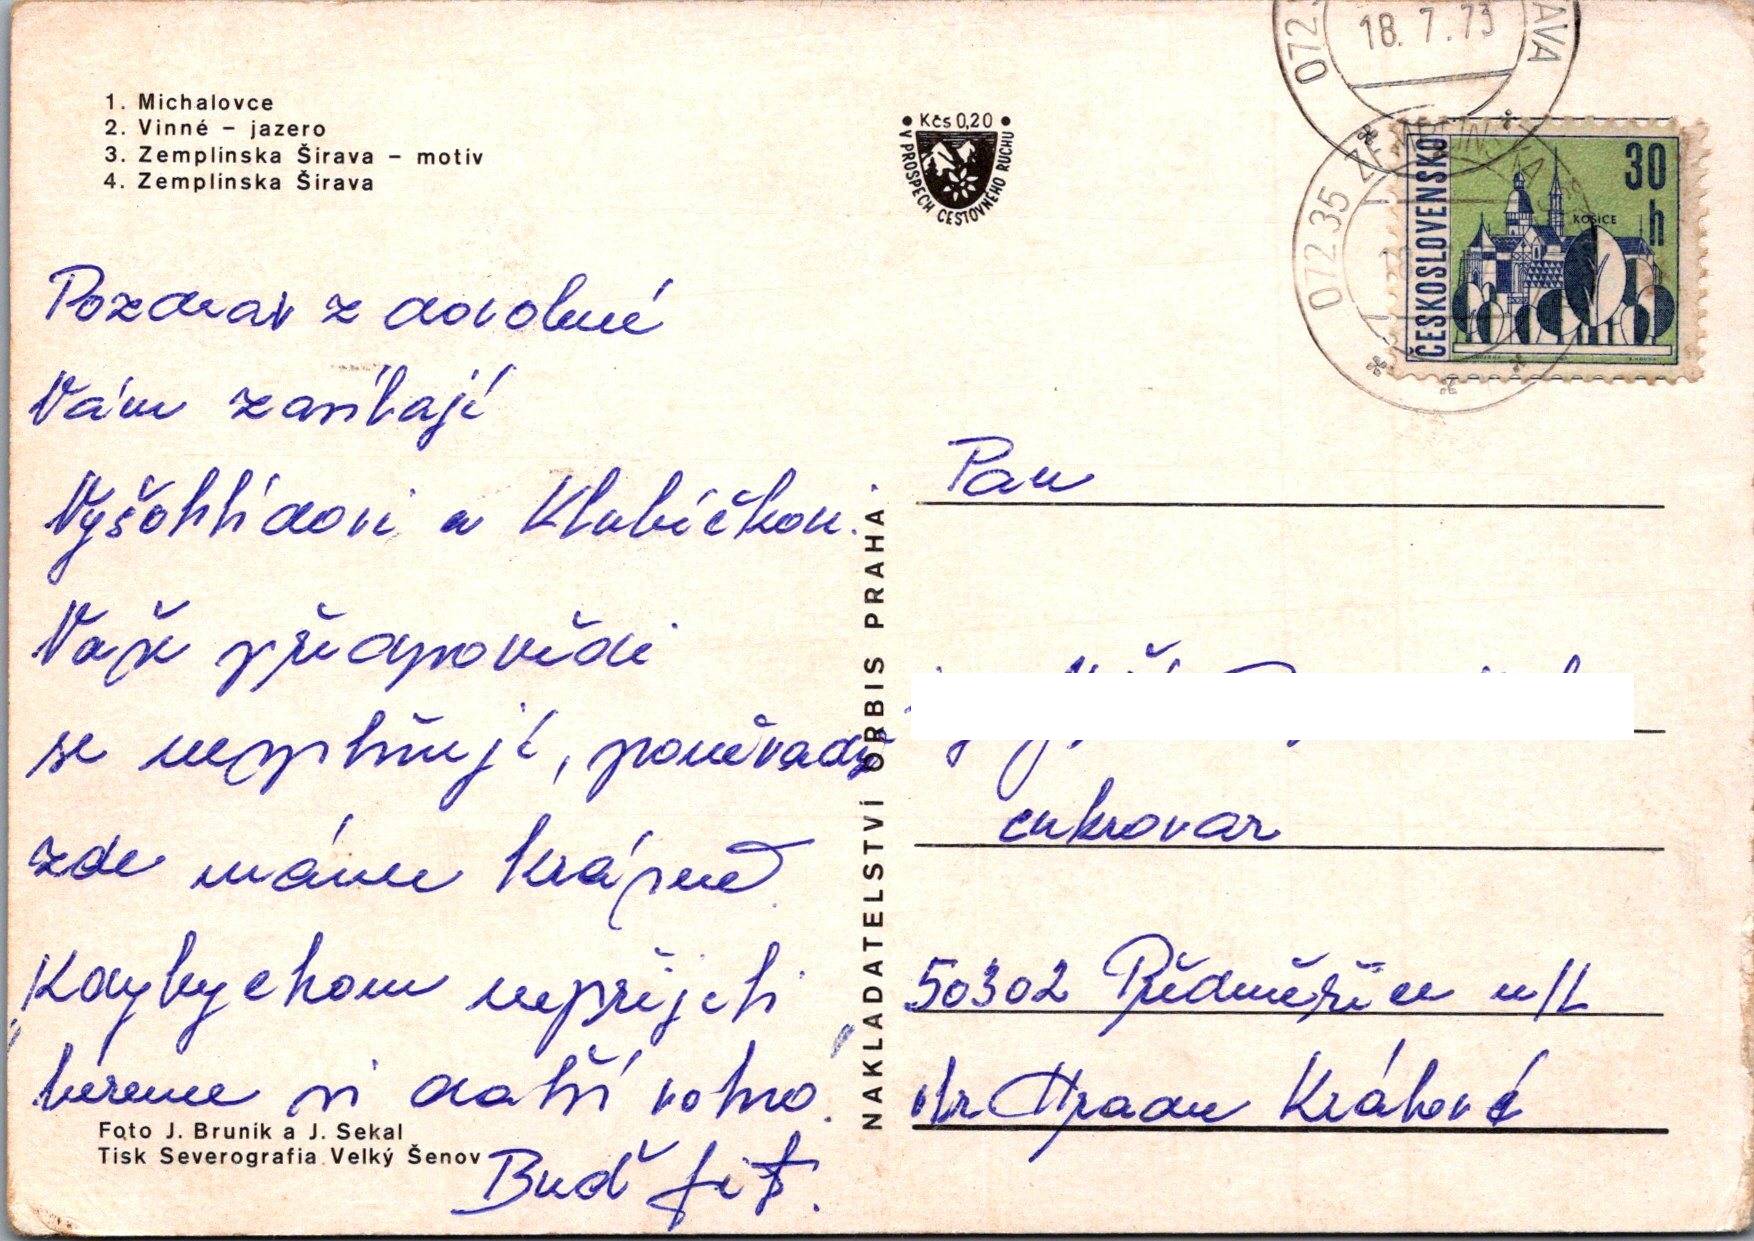 1. Michalovce
2. Vinné – jazero
3. Zemplínska Šírava – motív
4. Zemplínska Šírava
Kčs 0,20
V PROSPĚCH CESTOVNÉHO RUCHU
18. 7. 73
072 35 ZEMPLÍNSKA
ČESKOSLOVENSKO
30 h
KOŠICE
Pozdrav z dovolené
Vám zasílají
Vyšohlídovi a Klubíčkovi.
Vaše předpovědi
se nesplňují, poněvadž
zde máme krásně.
Kdybychom nepřijeli
bereme si další volno.
Buď fit.
Foto J. Bruník a J. Sekal
Tisk Severografia Velký Šenov
NAKLADATELSTVÍ ORBIS PRAHA
Pan
cukrovar
50302 Předměřice n/L
okr Hradec Králové